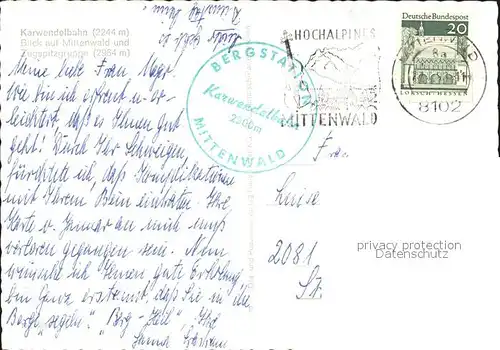 Karwendelbahn (2244 m)
Blick auf Mittenwald und
Zugspitzgruppe (2964 m)
HOCHALPINES
MITTENWALD
Deutsche Bundespost
20
8102
BERGSTATION
Karwendelbahn
MITTENWALD
Meine liebe Frau
Wie bin ich erfreut u. er-
leichtert, daß es Ihnen gut
geht. Durch Ihr Schweigen
fürchtete ich, daß Komplikationen
mit Ihrem Bein eintraten. Ihre
Karte v. Januar an mich muß
verloren gegangen sein. Nun
wünsche ich Ihnen gute Erholung
Bin ganz erstaunt, daß Sie in die
Berge "segeln". "Berg-Heil", Ihre
Frau
Luise
2081
privacy protection
Datenschutz